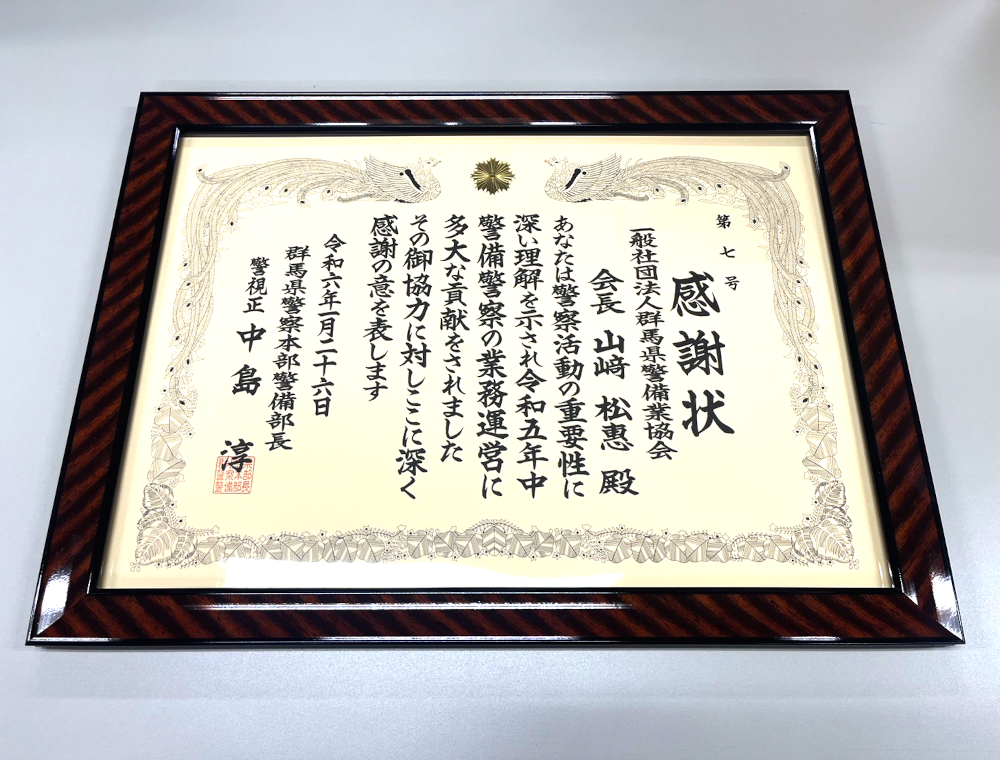 第七号
感謝状
一般社団法人群馬県警備業協会
会長 山﨑 松惠 殿
あなたは警察活動の重要性に
深い理解を示され令和五年中
警備警察の業務運営に
多大な貢献をされました
その御協力に対しここに深く
感謝の意を表します
令和六年一月二十六日
群馬県警察本部警備部長
警視正 中島 淳